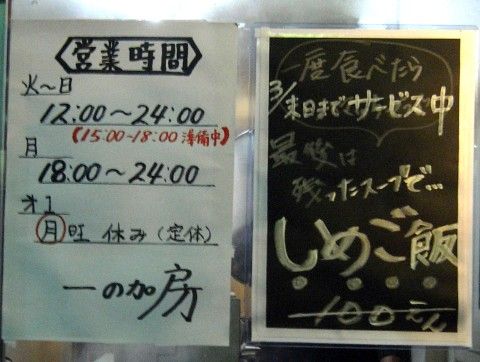 営業時間
火～日
12:00～24:00
(15:00~18:00準備中)
月
18:00～24:00
オ1
月旺 休み(定休)
一の加房
一度食べたら
3/末日までサービス中
最後は
残ったスープで…
しめご飯
100えん